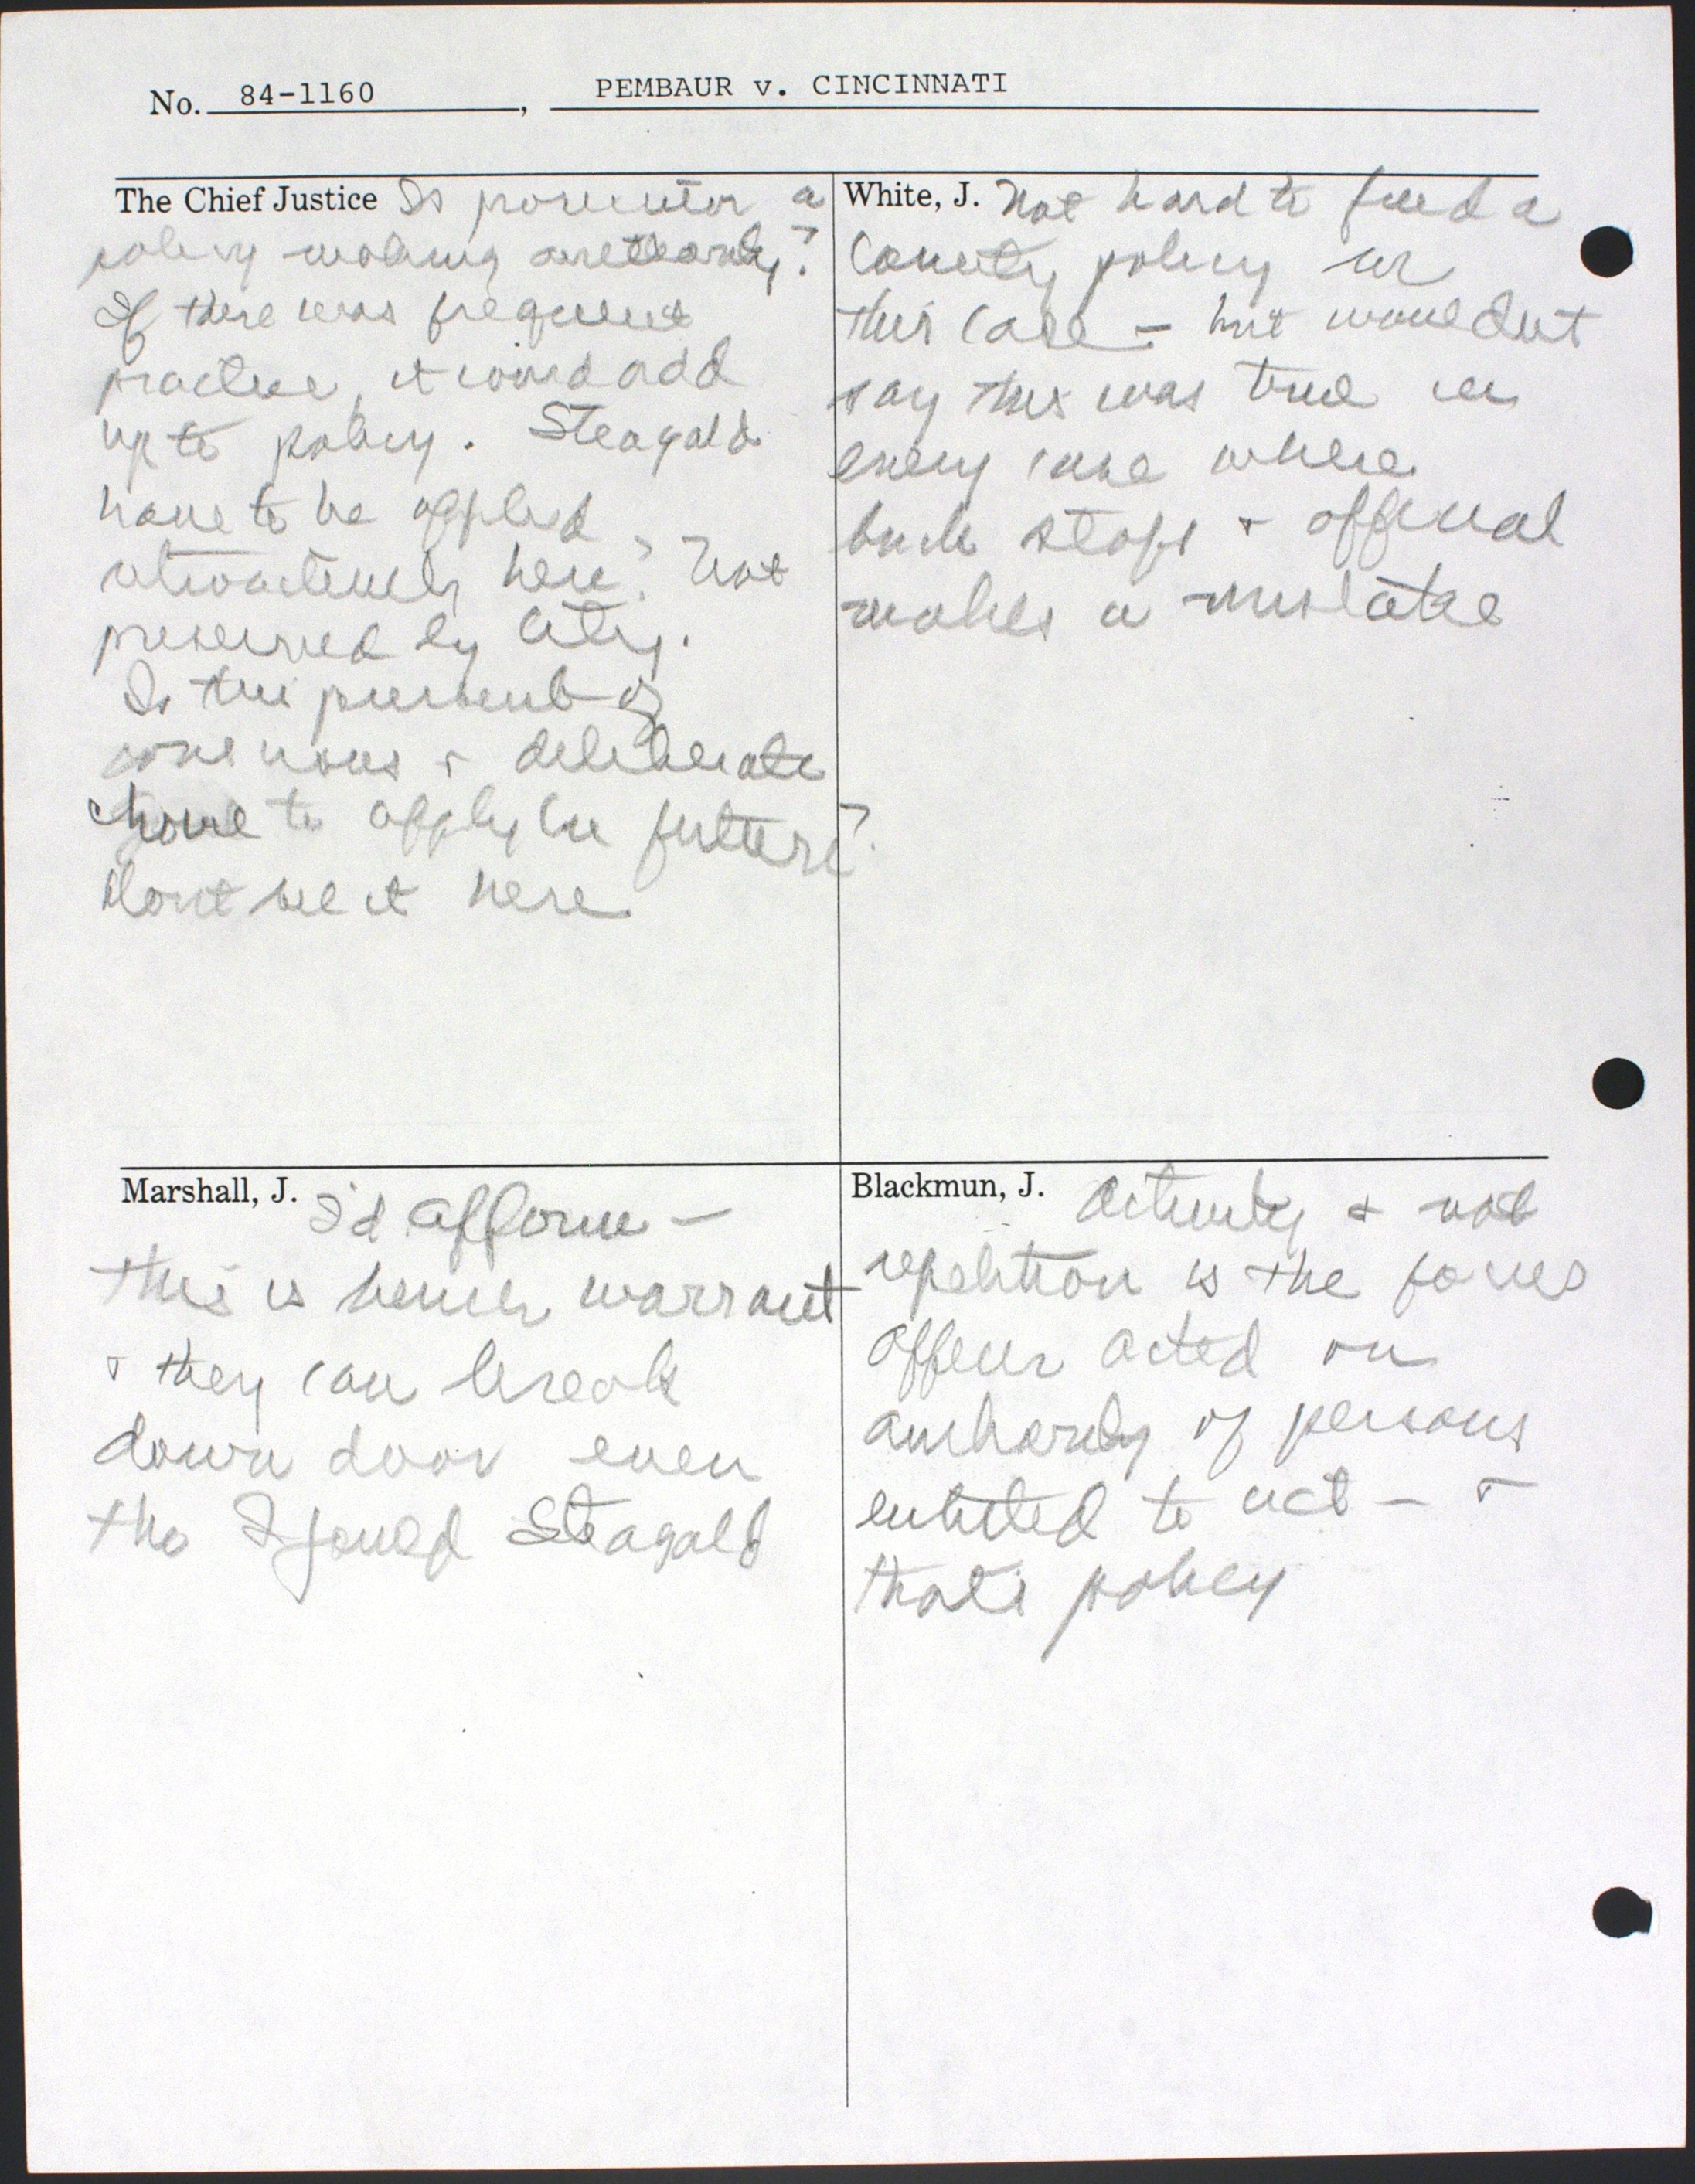 No. 84-1160, PEMBAUR v. CINCINNATI
The Chief Justice Is prosecutor a
policy making authority?
If there was frequent
practice, it would add
up to policy. Steagald
have to be applied
retroactively here? Not
preserved by City.
Is this product of
conscious & deliberate
choice to apply in future?
Don't see it here
White, J. Not hard to find a
County policy in
this case - but wouldnt
say this was true in
every case where
buck stops & official
makes a mistake
Marshall, J. I'd affirm -
this is bench warrant
& they can break
down door even
tho I joined Steagald
Blackmun, J. Activity & not
repetition is the focus
Officer acted on
authority of persons
entitled to act - &
that's policy